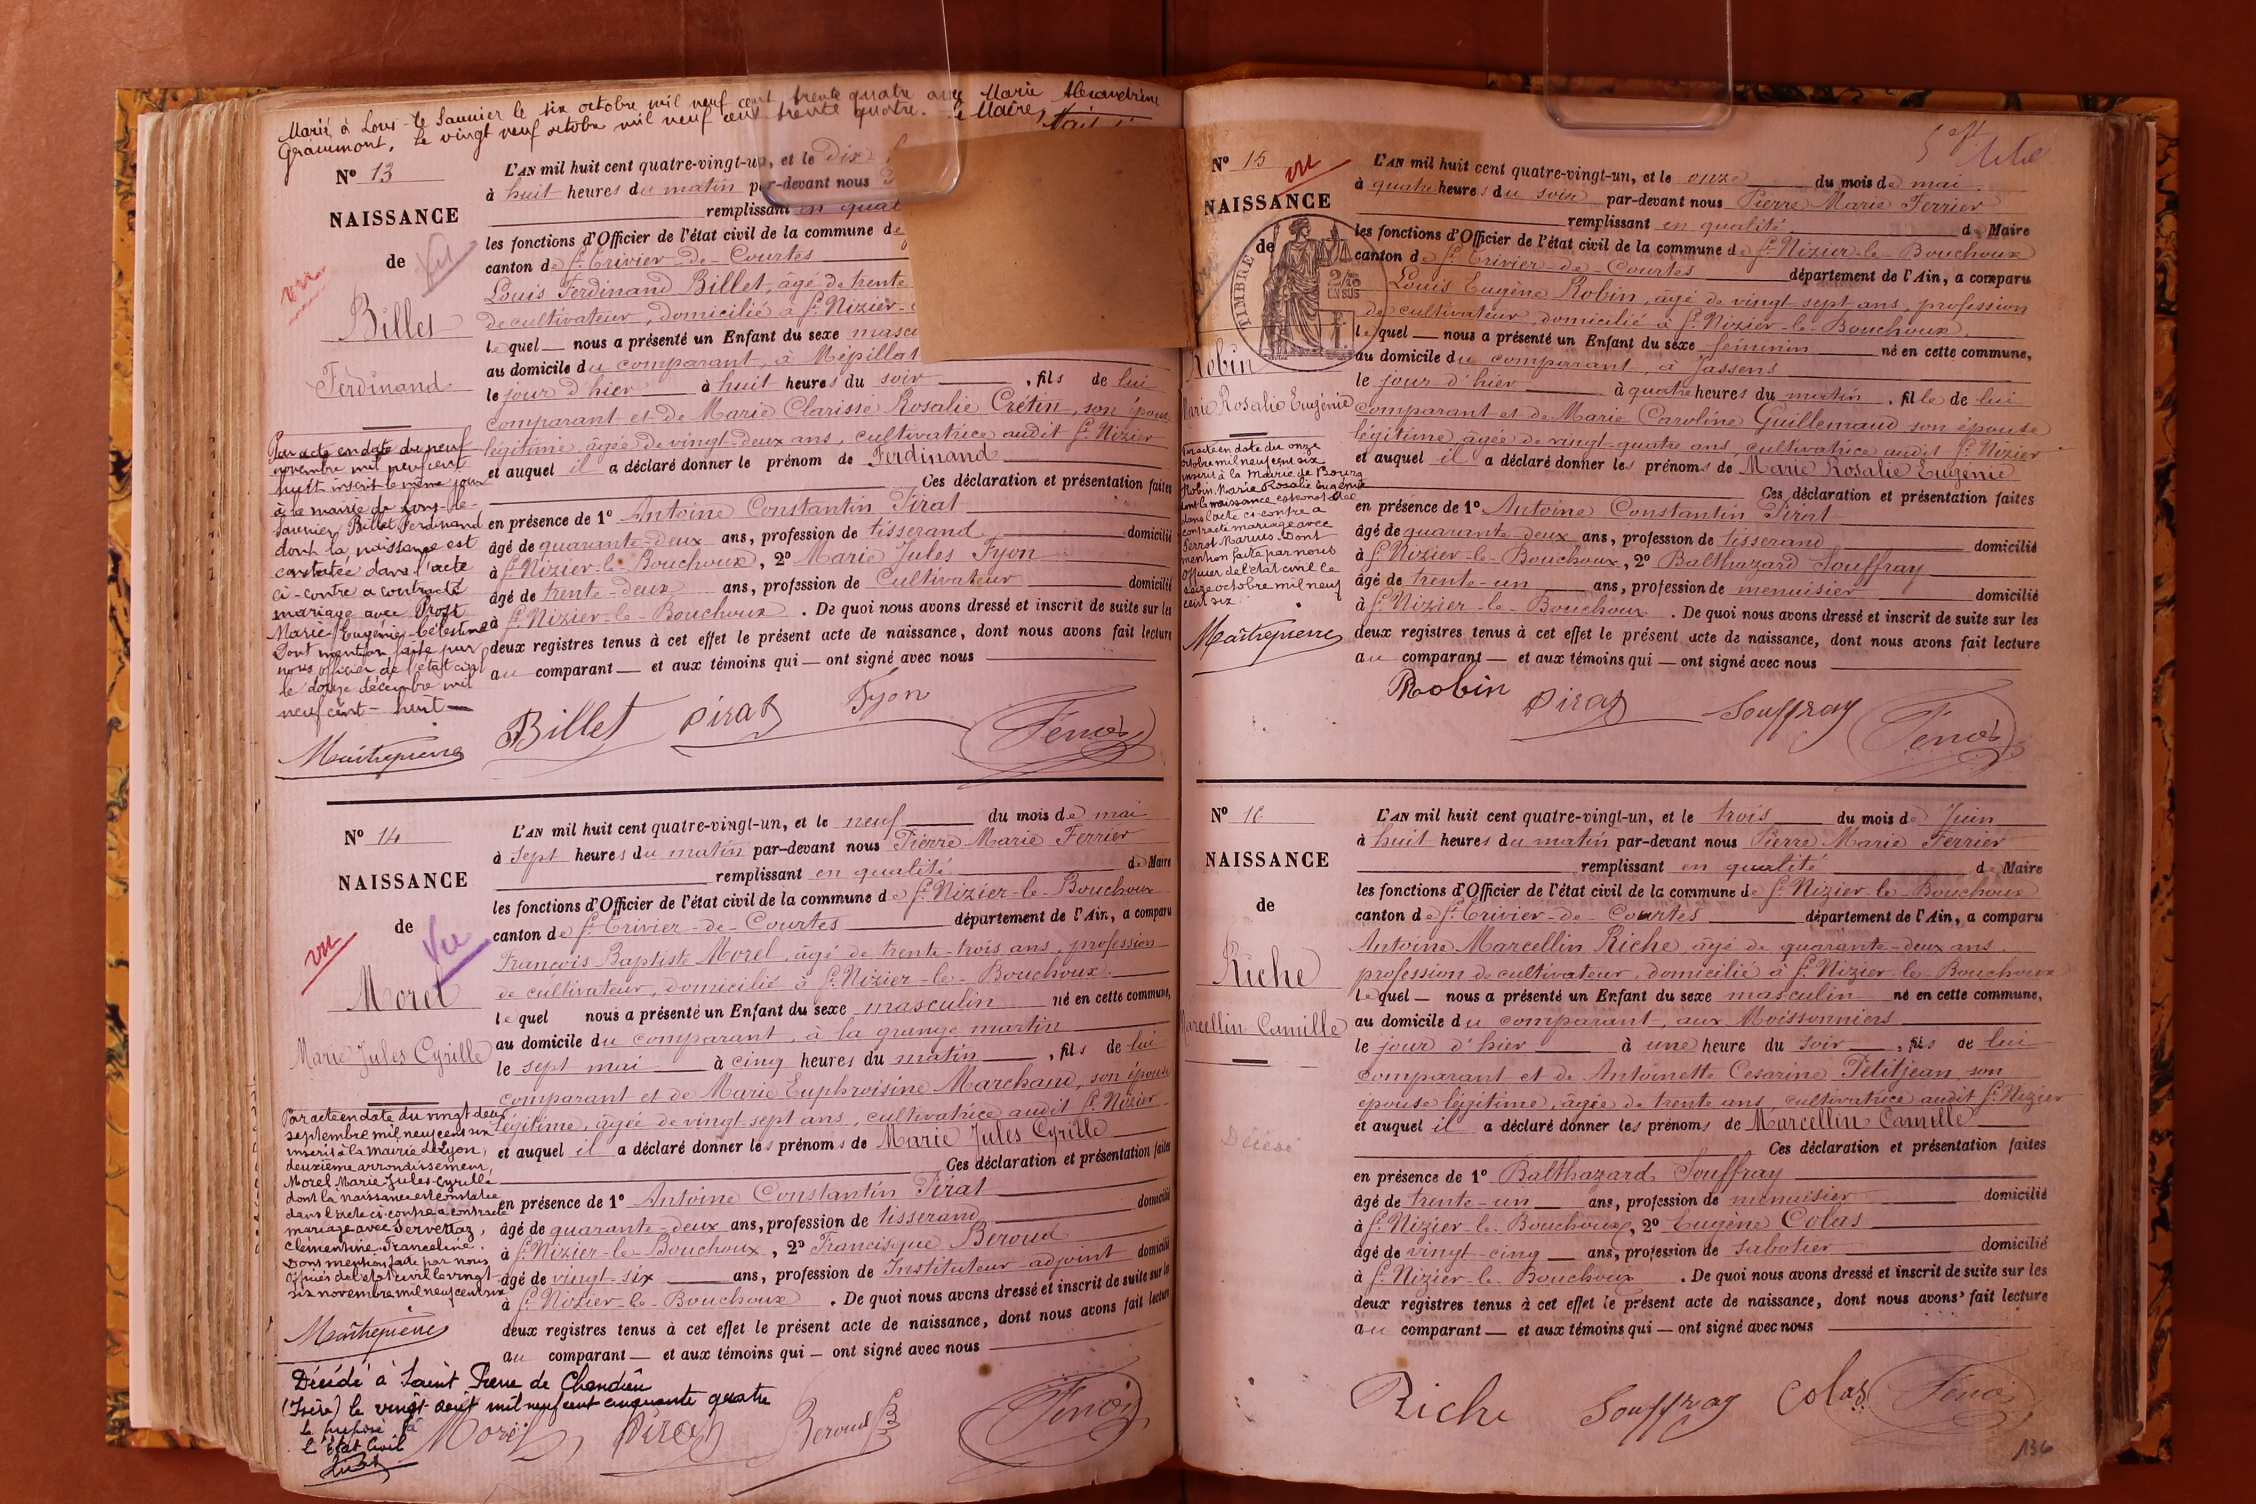 Marié à Lons-le-Saunier le six octobre mil neuf cent trente quatre avec Marie Alexandrine
Grammont. Le vingt neuf octobre mil neuf cent trente quatre. Le Maire,
Nº 13
NAISSANCE
de
vu
Vu
Billet
Ferdinand
Par acte en date du neuf
novembre mil neuf cent
huit inscrit le même jour
à la mairie de Lons-le-
Saunier, Billet Ferdinand
dont la naissance est
constatée dans l'acte
ci-contre a contracté
mariage avec Prost
Marie Eugénie Célestine
Dont mention faite par
nous officier de l'état civil
le douze décembre mil
neuf cent huit
L'AN mil huit cent quatre-vingt-un, et le dix
à huit heures du matin par-devant nous
remplissant en qual
les fonctions d'Officier de l'état civil de la commune de
canton de St. Trivier-de-Courtes
Louis Ferdinand Billet, âgé de trente
de cultivateur, domicilié à St. Nizier-
lequel nous a présenté un Enfant du sexe mascu
au domicile du comparant, à Mépillat
le jour d'hier à huit heures du soir, fils de lui
comparant et de Marie Clarisse Rosalie Crétin, son épouse
légitime, âgée de vingt-deux ans, cultivatrice audit St. Nizier
et auquel il a déclaré donner le prénom de Ferdinand
Ces déclaration et présentation faites
en présence de 1º Antoine Constantin Pirat
âgé de quarante-deux ans, profession de tisserand domicilié
à St. Nizier-le-Bouchoux, 2º Marie Jules Fyon
âgé de trente-deux ans, profession de Cultivateur domicilié
à St. Nizier-le-Bouchoux. De quoi nous avons dressé et inscrit de suite sur les
deux registres tenus à cet effet le présent acte de naissance, dont nous avons fait lecture
au comparant et aux témoins qui ont signé avec nous
Billet Pirat Fyon
Nº 14
NAISSANCE
de
vu
Vu
Morel
Marie Jules Cyrille
Par acte en date du vingt deux
septembre mil neuf cent six
inscrit à la Mairie de Lyon,
deuxième arrondissement,
Morel Marie Jules Cyrille
dont la naissance est constatée
dans l'acte ci-contre a contracté
mariage avec Servettaz,
Clémentine Franceline.
Dont mention faite par nous
officier de l'état civil le vingt
six novembre mil neuf cent six
Décédé à Saint Pierre de Chandieu
(Isère) le vingt août mil neuf cent cinquante quatre
le préposé à
l'État Civil
L'AN mil huit cent quatre-vingt-un, et le neuf du mois de mai
à sept heures du matin par-devant nous Pierre Marie Ferrier
remplissant en qualité de Maire
les fonctions d'Officier de l'état civil de la commune de St. Nizier-le-Bouchoux
canton de St. Trivier-de-Courtes département de l'Ain, a comparu
François Baptiste Morel, âgé de trente-trois ans, profession
de cultivateur, domicilié à St. Nizier-le-Bouchoux.
lequel nous a présenté un Enfant du sexe masculin né en cette commune,
au domicile du comparant, à la grange martin
le sept mai à cinq heures du matin, fils de lui
comparant et de Marie Euphroisine Marchand, son épouse
légitime, âgée de vingt sept ans, cultivatrice audit St. Nizier
et auquel il a déclaré donner les prénoms de Marie Jules Cyrille
Ces déclaration et présentation faites
en présence de 1º Antoine Constantin Pirat
âgé de quarante-deux ans, profession de tisserand domicilié
à St. Nizier-le-Bouchoux, 2º Francisque Beroud
âgé de vingt-six ans, profession de Instituteur adjoint domicilié
à St. Nizier-le-Bouchoux. De quoi nous avons dressé et inscrit de suite sur les
deux registres tenus à cet effet le présent acte de naissance, dont nous avons fait lecture
au comparant et aux témoins qui ont signé avec nous
Morel Pirat Beroud
Nº 15
vu
NAISSANCE
de
TIMBRE
Robin
Marie Rosalie Eugénie
Par acte en date du onze
octobre mil neuf cent six
inscrit à la Mairie de Bourg
Robin Marie Rosalie Eugénie
dont la naissance est constatée
dans l'acte ci-contre a
contracté mariage avec
Perrot Marius. Dont
mention faite par nous
officier de l'état civil le
seize octobre mil neuf
cent six.
L'AN mil huit cent quatre-vingt-un, et le onze du mois de mai
à quatre heures du soir par-devant nous Pierre Marie Ferrier
remplissant en qualité de Maire
les fonctions d'Officier de l'état civil de la commune de St. Nizier-le-Bouchoux
canton de St. Trivier-de-Courtes département de l'Ain, a comparu
Louis Eugène Robin, âgé de vingt sept ans, profession
de cultivateur, domicilié à St. Nizier-le-Bouchoux.
lequel nous a présenté un Enfant du sexe féminin né en cette commune,
au domicile du comparant, à Jassens
le jour d'hier à quatre heures du matin, fille de lui
comparant et de Marie Caroline Guillemaud son épouse
légitime, âgée de vingt-quatre ans, cultivatrice audit St. Nizier
et auquel il a déclaré donner les prénoms de Marie Rosalie Eugénie
Ces déclaration et présentation faites
en présence de 1º Antoine Constantin Pirat
âgé de quarante deux ans, profession de tisserand domicilié
à St. Nizier-le-Bouchoux, 2º Balthazard Souffray
âgé de trente-un ans, profession de menuisier domicilié
à St. Nizier-le-Bouchoux. De quoi nous avons dressé et inscrit de suite sur les
deux registres tenus à cet effet le présent acte de naissance, dont nous avons fait lecture
au comparant et aux témoins qui ont signé avec nous
Robin Pirat Souffray
Nº 16
NAISSANCE
de
Riche
Marcellin Camille
Décédé
L'AN mil huit cent quatre-vingt-un, et le trois du mois de Juin
à huit heures du matin par-devant nous Pierre Marie Ferrier
remplissant en qualité de Maire
les fonctions d'Officier de l'état civil de la commune de St. Nizier-le-Bouchoux
canton de St. Trivier-de-Courtes département de l'Ain, a comparu
Antoine Marcellin Riche, âgé de quarante-deux ans.
profession de cultivateur, domicilié à St. Nizier-le-Bouchoux
lequel nous a présenté un Enfant du sexe masculin né en cette commune,
au domicile du comparant, aux Moissonniers
le jour d'hier à une heure du soir, fils de lui
comparant et de Antoinette Cesarine Petitjean, son
épouse légitime, âgée de trente ans, cultivatrice audit St. Nizier
et auquel il a déclaré donner les prénoms de Marcellin Camille
Ces déclaration et présentation faites
en présence de 1º Balthazard Souffray
âgé de trente-un ans, profession de menuisier domicilié
à St. Nizier-le-Bouchoux, 2º Eugène Colas
âgé de vingt-cinq ans, profession de sabotier domicilié
à St. Nizier-le-Bouchoux. De quoi nous avons dressé et inscrit de suite sur les
deux registres tenus à cet effet le présent acte de naissance, dont nous avons fait lecture
au comparant et aux témoins qui ont signé avec nous
Riche Souffray Colas
136